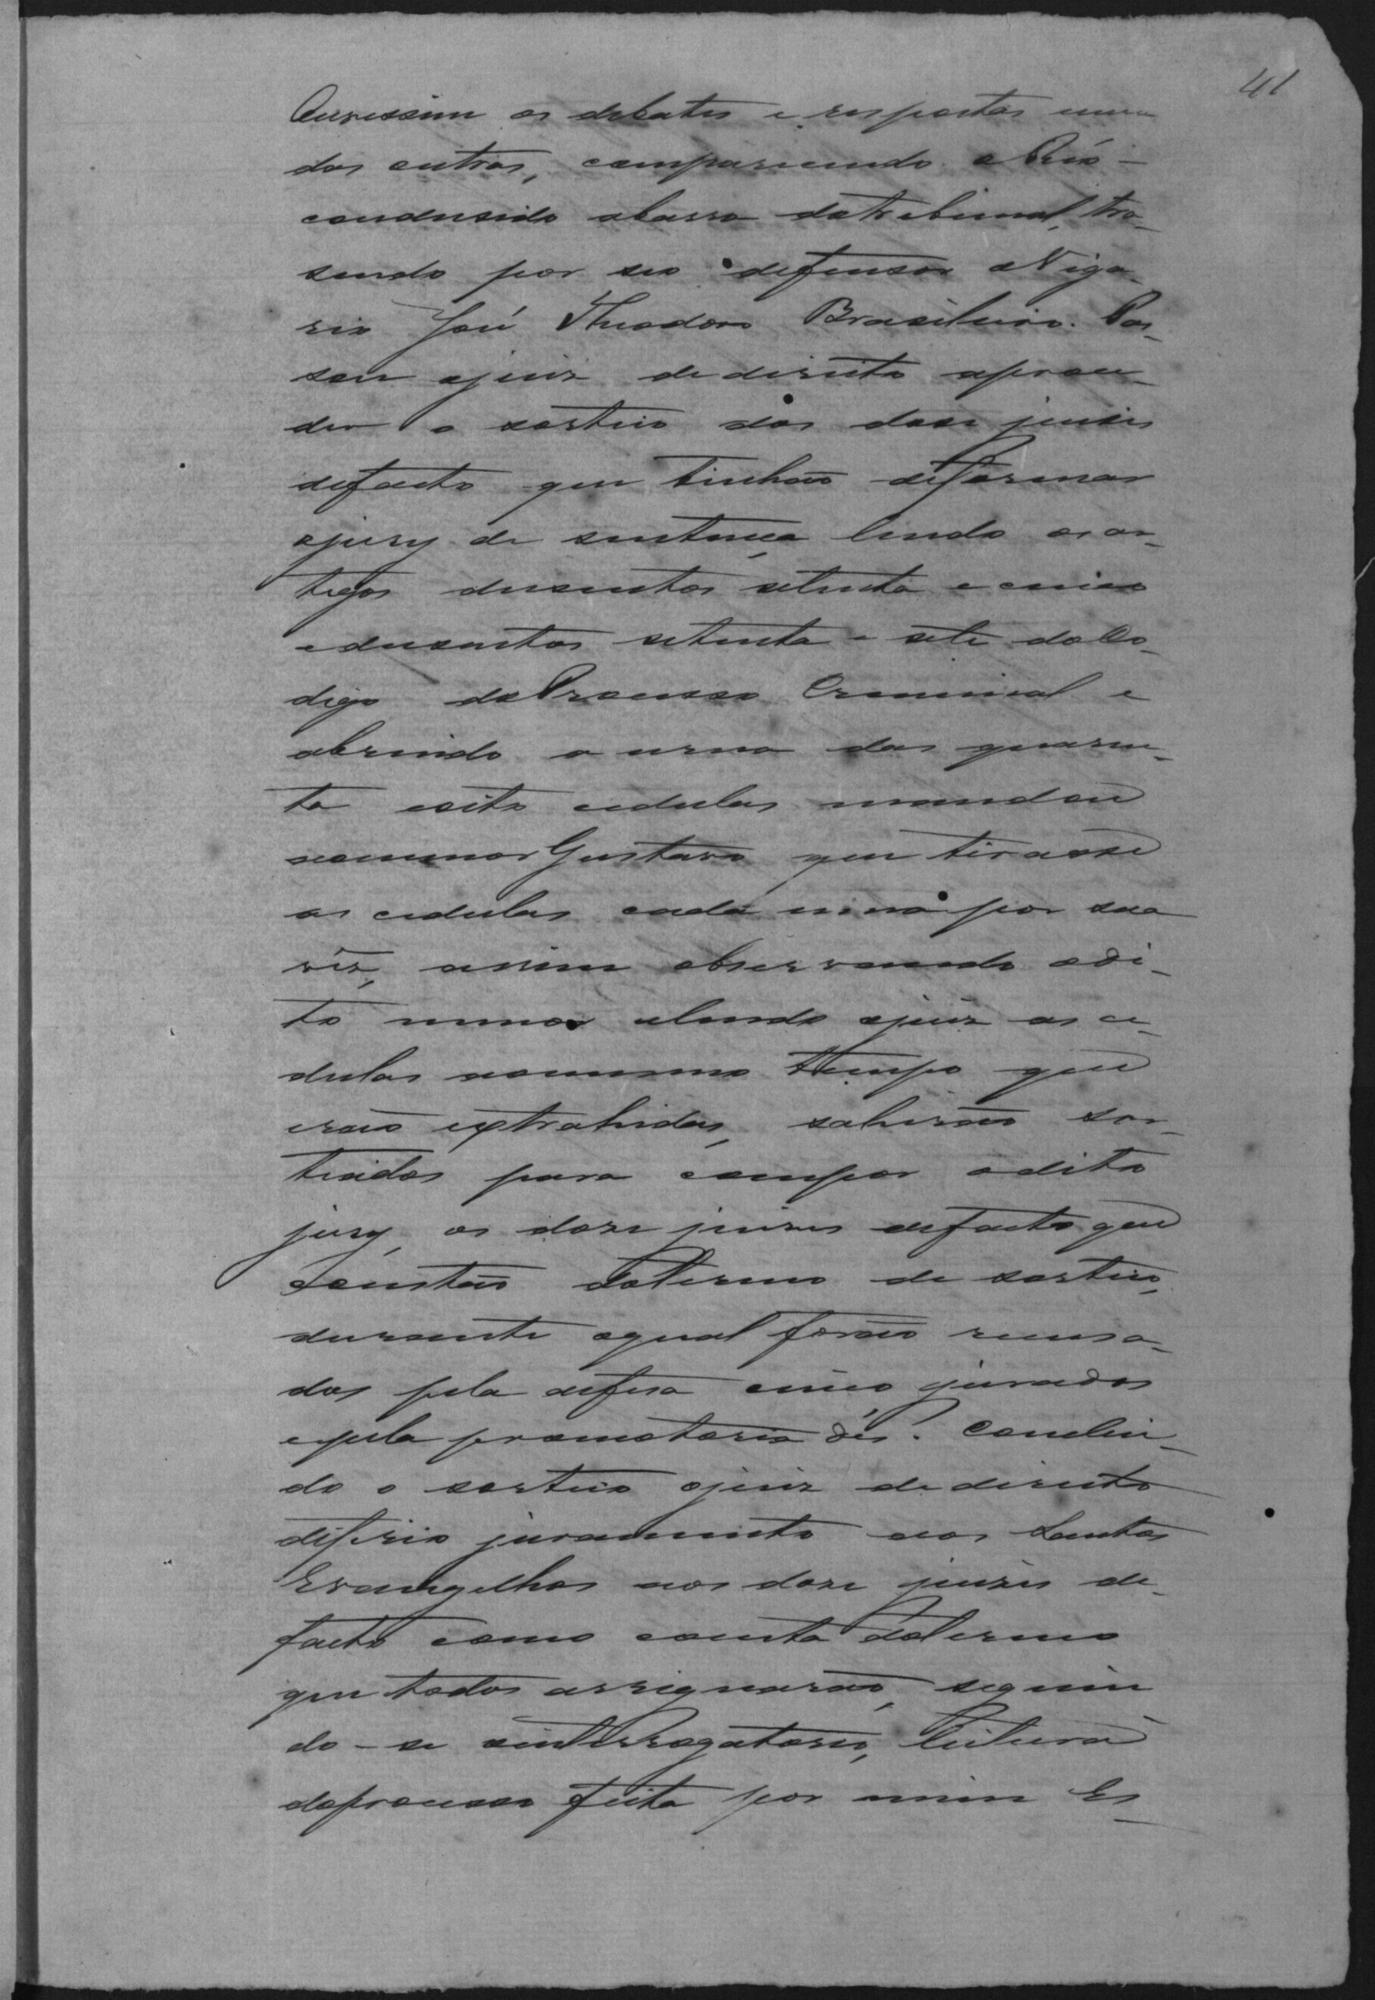 41
ouvissem os debates e respostas umas
dos outros, comparecendo o Réo
condusido abarra dotribunal, tra-
sendo por seo defensor oViga-
rio José Theodoro Brasileiro. Pas-
sou ojuiz dedireito aproce-
der o sorteio dos dose juises
defacto que tinhaõ deformar
ojury de sentença lendo os ar-
tigos dusentos setenta e cinco
edusentos setenta e sete doCo-
digo doProcesso Criminal e
abrindo a urna das quaren-
ta eoito cedulas mandou
aomenor Gustavo que tirasse
as cedulas cada uma por sua
vez, assim observando odi-
to menor elendo ojuiz as ce-
dulas nomesmo tempo que
eraõ extrahidas, sahiraõ sor-
teados para compor odito
jury, os doze juizes defacto que
constaõ dotermo de sorteio,
durante oqual foraõ recusa-
dos pela defesa cinco jurados
epela promotoria dés. Conclui-
do o sorteio ojuiz dedireito
diferio juramento aos Santos
Evangelhos aos doze juizes de-
facto como consta dotermo
que todos assignaraõ, seguin
do-se ointerrogatorio, leitura
doprocesso feita por mim Es-